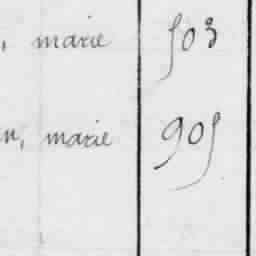 , marie 503
n, marie 905